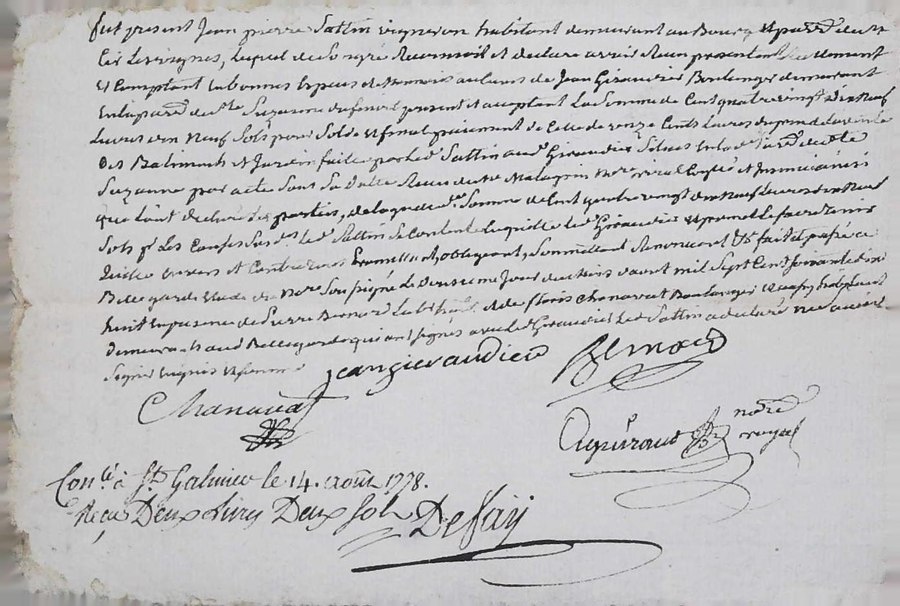 fut present Jean pierre Sattin vigneron habitant demeurant au Bourg et parr.e de St
Cir Les vignes, Lequel de Son gré Reconnoit et declare avoir Reçu presentement Reellement
et Comptant en bonnes Especes de monnoie au cours de Jean Giraudier Boulanger demeurant
en la par.e de Ste Suzanne present et acceptant La Somme de Cent quatre vingt dix Neuf
Livres dix Neuf Sols pour Solde et final paiement de Celle de onze Cents Livres du prix de La vente
des Batiments et Jardin faite par Led. Sattin aud. Giraudier Situés en lad. par.e de Ste
Suzanne par acte Sous Sa Datte Recu de me not.re
que L'ont declaré Les parties, de laquelle d. Somme de Cent quatre vingt dix Neuf Livres dix Neuf
Sols Led. Sattin Se Contente en quitte Led. Giraudier et promet Le faire Tenir
quitte envers et Contre tous Promettant obligeant Soumettant Renoncant &c fait et passé a
Bellegarde Etude du Not.re Soussigné Le Jour du mois daout mil Sept Cent Soixante dix
huit en presence de Pierre Bernard et de floris Chanavat Boulanger
demeurants aud. Bellegarde qui ont signés avec led. Giraudier Led. Sattin a declaré ne Savoir
Signer enquis et Sommé
jean giraudier
Bernard
Chanavat
notre
royal
Con.lé à St Galmier le 14. août 1778.
Reçu Deux Livres Deux Sols Defay